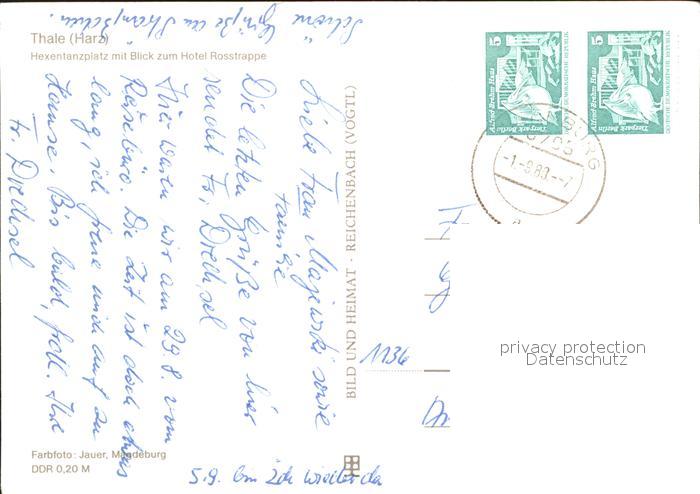 Thale (Harz)
Hexentanzplatz mit Blick zum Hotel Rosstrappe
Schöne
Grüße an
Liebe Frau Majewski sowie
Familie
Die letzten Grüße von hier
sendet Fr. Drechsel
Hier waren wir am 29. 8. vom
Reisebüro. Die Zeit ist doch etwas
lang, ich freue mich auf zu
Hause. Bis bald, frdl. Ihre
Fr. Drechsel
BILD UND HEIMAT · REICHENBACH (VOGTL)
5
Alfred-Brehm-Haus
Tierpark Berlin
DEUTSCHE DEMOKRATISCHE REPUBLIK
5
Alfred-Brehm-Haus
Tierpark Berlin
DEUTSCHE DEMOKRATISCHE REPUBLIK
BURG
-1.-9.83.--7
1136
privacy protection
Datenschutz
Farbfoto: Jauer, Magdeburg
DDR 0,20 M
5.9. bin ich wieder da